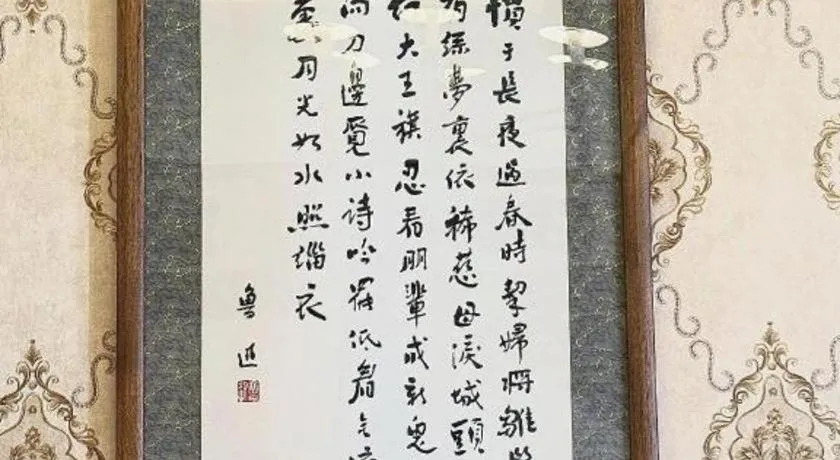 慣于長夜過春時挈婦將雛
有絲夢裏依稀慈母淚城頭
幻大王旗忍看朋輩成新鬼
向刀邊覓小詩吟罷低眉無
月光如水照緇衣
魯迅